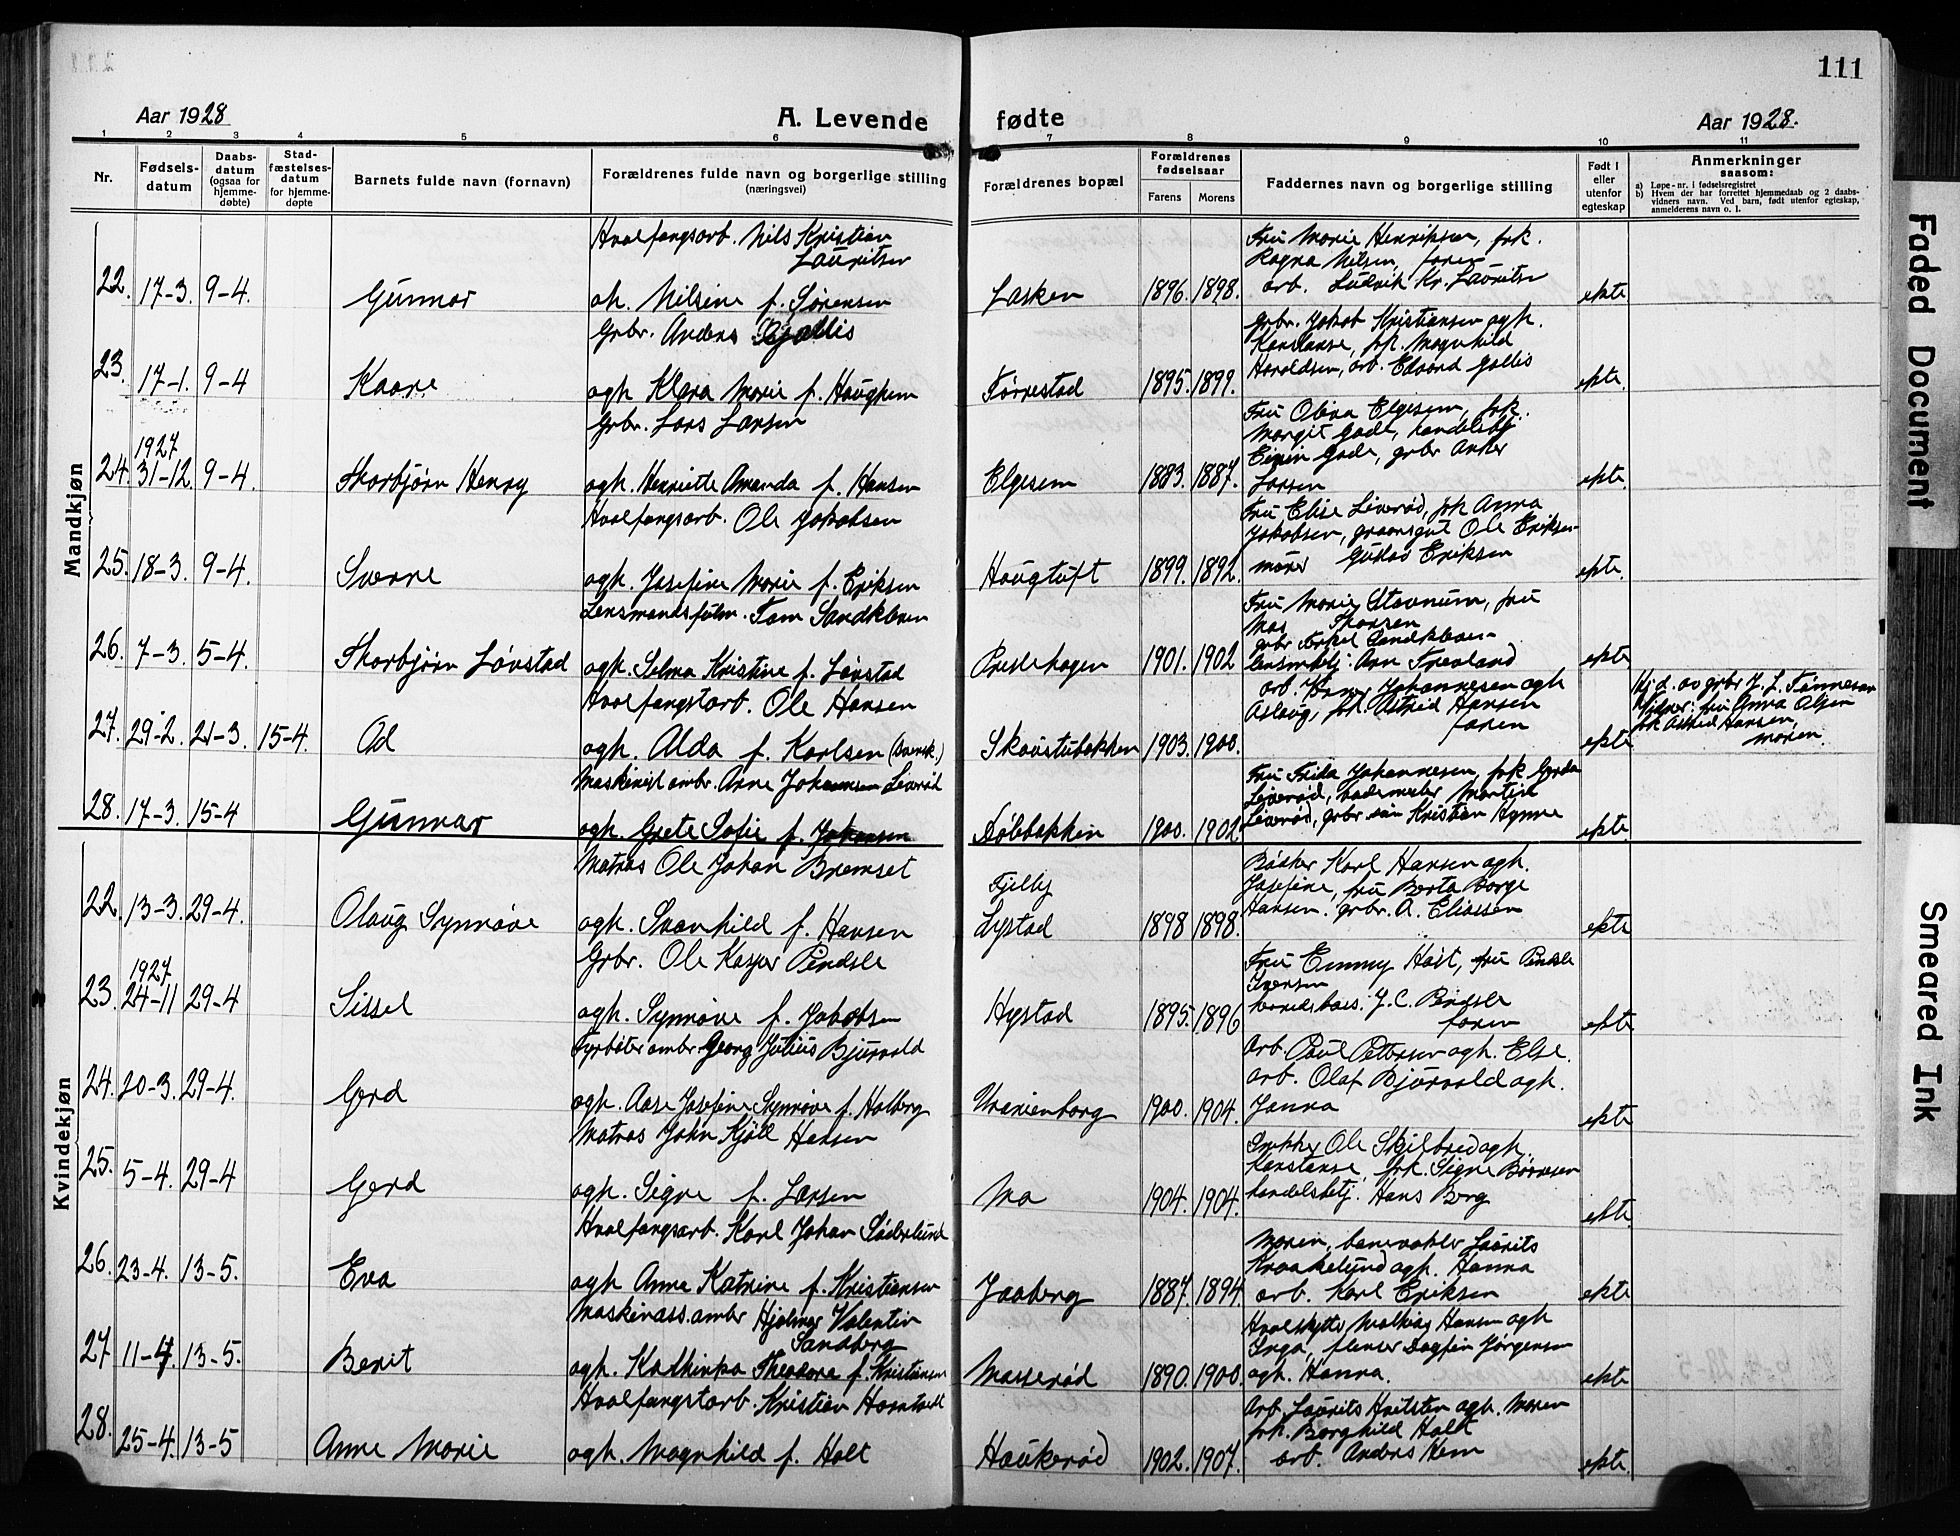 111
Aar 1928
A. Levende
fødte
Aar 1928.
1 2 3 4 5 6 7 8 9 10 11
Nr.
Fødsels-
datum
Daabs-
datum
(ogsaa for
hjemme-
døbte)
Stad-
fæstelses-
datum
for hjemme-
døpte
Barnets fulde navn (fornavn)
Forældrenes fulde navn og borgerlige stilling
(næringsvei)
Forældrenes bopæl
Forældrenes
fødselsaar
Farens Morens
Faddernes navn og borgerlige stilling
Født i
eller
utenfor
egteskap
Anmerkninger
saasom:
a) Løpe-nr. i fødselsregistret
b) Hvem der har forrettet hjemmedaab og 2 daabs-
vidners navn. Ved barn, født utenfor egteskap,
anmelderens navn o. l.
Mandkjøn
22. 17-3. 9-4. Gunnar
Hvalfangsarb. Nils Kristian
Lauritsen
oh. Nilsine f. Sørensen
Lasken 1896. 1898.
Fru Marie Henriksen, frk.
Ragna Nilsen, faren
arb. Ludvik Kr. Lauritsen
ekte
23. 17-1. 9-4 Kaare
Grbr. Anders Gjallis
ogh. Klara Marie f. Haughem
Tørrestad 1895. 1899.
Grbr. Jakob Kristiansen ogh.
Konstanse, frk. Magnhild
Haraldsen, arb. Edvard Gallis
ekte.
24. 1927
31-12. 9-4. Thorbjørn Henry
Grbr. Lars Larsen
ogh. Henriette Amanda f. Hansen
Elgesem 1883. 1887.
Fru Oliva Elgesem, frk.
Margit Gade, handelsbtj
Einin Gade, grbr Anker
Larsen
ekte.
25. 18-3. 9-4. Sverre
Hvalfangsarb. Ole Jakobsen
ogh. Josefine Marie f. Eriksen
Haugtuft 1899. 1892.
Fru Elise Liverød, frk Anna
Jakobsen, Ole Eriksen
murer Gustav Eriksen
ekte.
26. 7-3. 5-4. Thorbjørn Løvstad
Lensmandsfulm. Tom Sandkleven
ogh. Selma Kristine f. Løvstad
Prestehagen 1901. 1902
Fru Marie Stavnum, fru
Thorsen
grbr Sandkleven
lensmbetj. Arn Treoland
ekte
27. 29-2. 21-3. 15-4. Od
Hvalfangstarb. Ole Hansen
ogh. Alda f. Karlsen (svensk.)
Skaustubakken 1903. 1900.
arb. Johannesen ogh
Aslaug, frk. Astrid Hansen
faren
ekte
Hj.d. av grbr J. L. Tønnesen
Vidner: fru Anna Olsen
frk Astrid Hansen,
moren.
28. 17-3. 15-4 Gunnar
Maskinist ambr. Arne Johannesen Liverød
ogh. Grete Sofie f. Johansen
Dølebakken 1900. 1902
Fru Frida Johannesen, frk Gerda
Liverød, bademester Martin
Liverød, grbr sön Kristian Hynne
ekte.
Kvindekjøn
22. 13-3. 29-4. Olaug Synnøve
Matros Ole Johan Bremset
ogh. Svanhild f. Hansen
Fjellby
Lystad 1898 1898.
Bødker Karl Hansen ogh.
Josefine, fru Berta Borge
Hansen. grbr. A. Eliassen
ekte
23. 1927
24-11 29-4 Sissel
Grbr. Ole Kasper Pindsle
ogh. Synnøve f. Jakobsen
Hystad 1895. 1896
Fru Emmy Høst, fru Pindsle
Iversen
handelsbes. J. C. Pindsle
faren
ekte
24. 20-3. 29-4. Gerd
Fyrbøter ambr. Georg Julius Bjurvald
ogh. Aase Josefine Synnøve f. Holberg
Uranienborg 1900. 1904.
Arb. Paul Pettersen ogh. Else.
arb. Olaf Bjurvald ogh.
Janna
ekte
25. 5-4. 29-4 Gerd
Matros John Kjøll Hansen
ogh. Signe f. Larsen
Mo 1904. 1904.
Snekker Ole Skjelbred ogh.
Konstanse, frk. Signe Børresen
handelsbetj. Hans Borg
ekte.
26. 23-4. 13-5. Eva
Hvalfangsarb. Karl Johan Söderlund
ogh Anna Katrine f. Kristiansen
Jaaberg 1887. 1894.
Moren, banevokter Laurits
Kraakelund ogh. Hanna
arb. Karl Eriksen
ekte
27. 11-4. 13-5. Berit
Maskinass. ambr Hjalmar Valentin
Sandberg
ogh. Kathinka Theodora f. Kristiansen
Masserød 1890. 1900.
Hvalskytte Mathias Hansen ogh
Inga, flenser Dagfin Jørgensen
ogh. Hanna.
ekte
28. 25-4. 13-5 Anne Marie
Hvalfangstarb. Kristian Horntvedt
ogh. Magnhild f. Holt
Haukerød 1902. 1907.
Arb. Laurits Hvitsten ogh. Maren
frk. Borghild Holt
arb. Anders Hem
ekte.
Faded Document
Smeared Ink